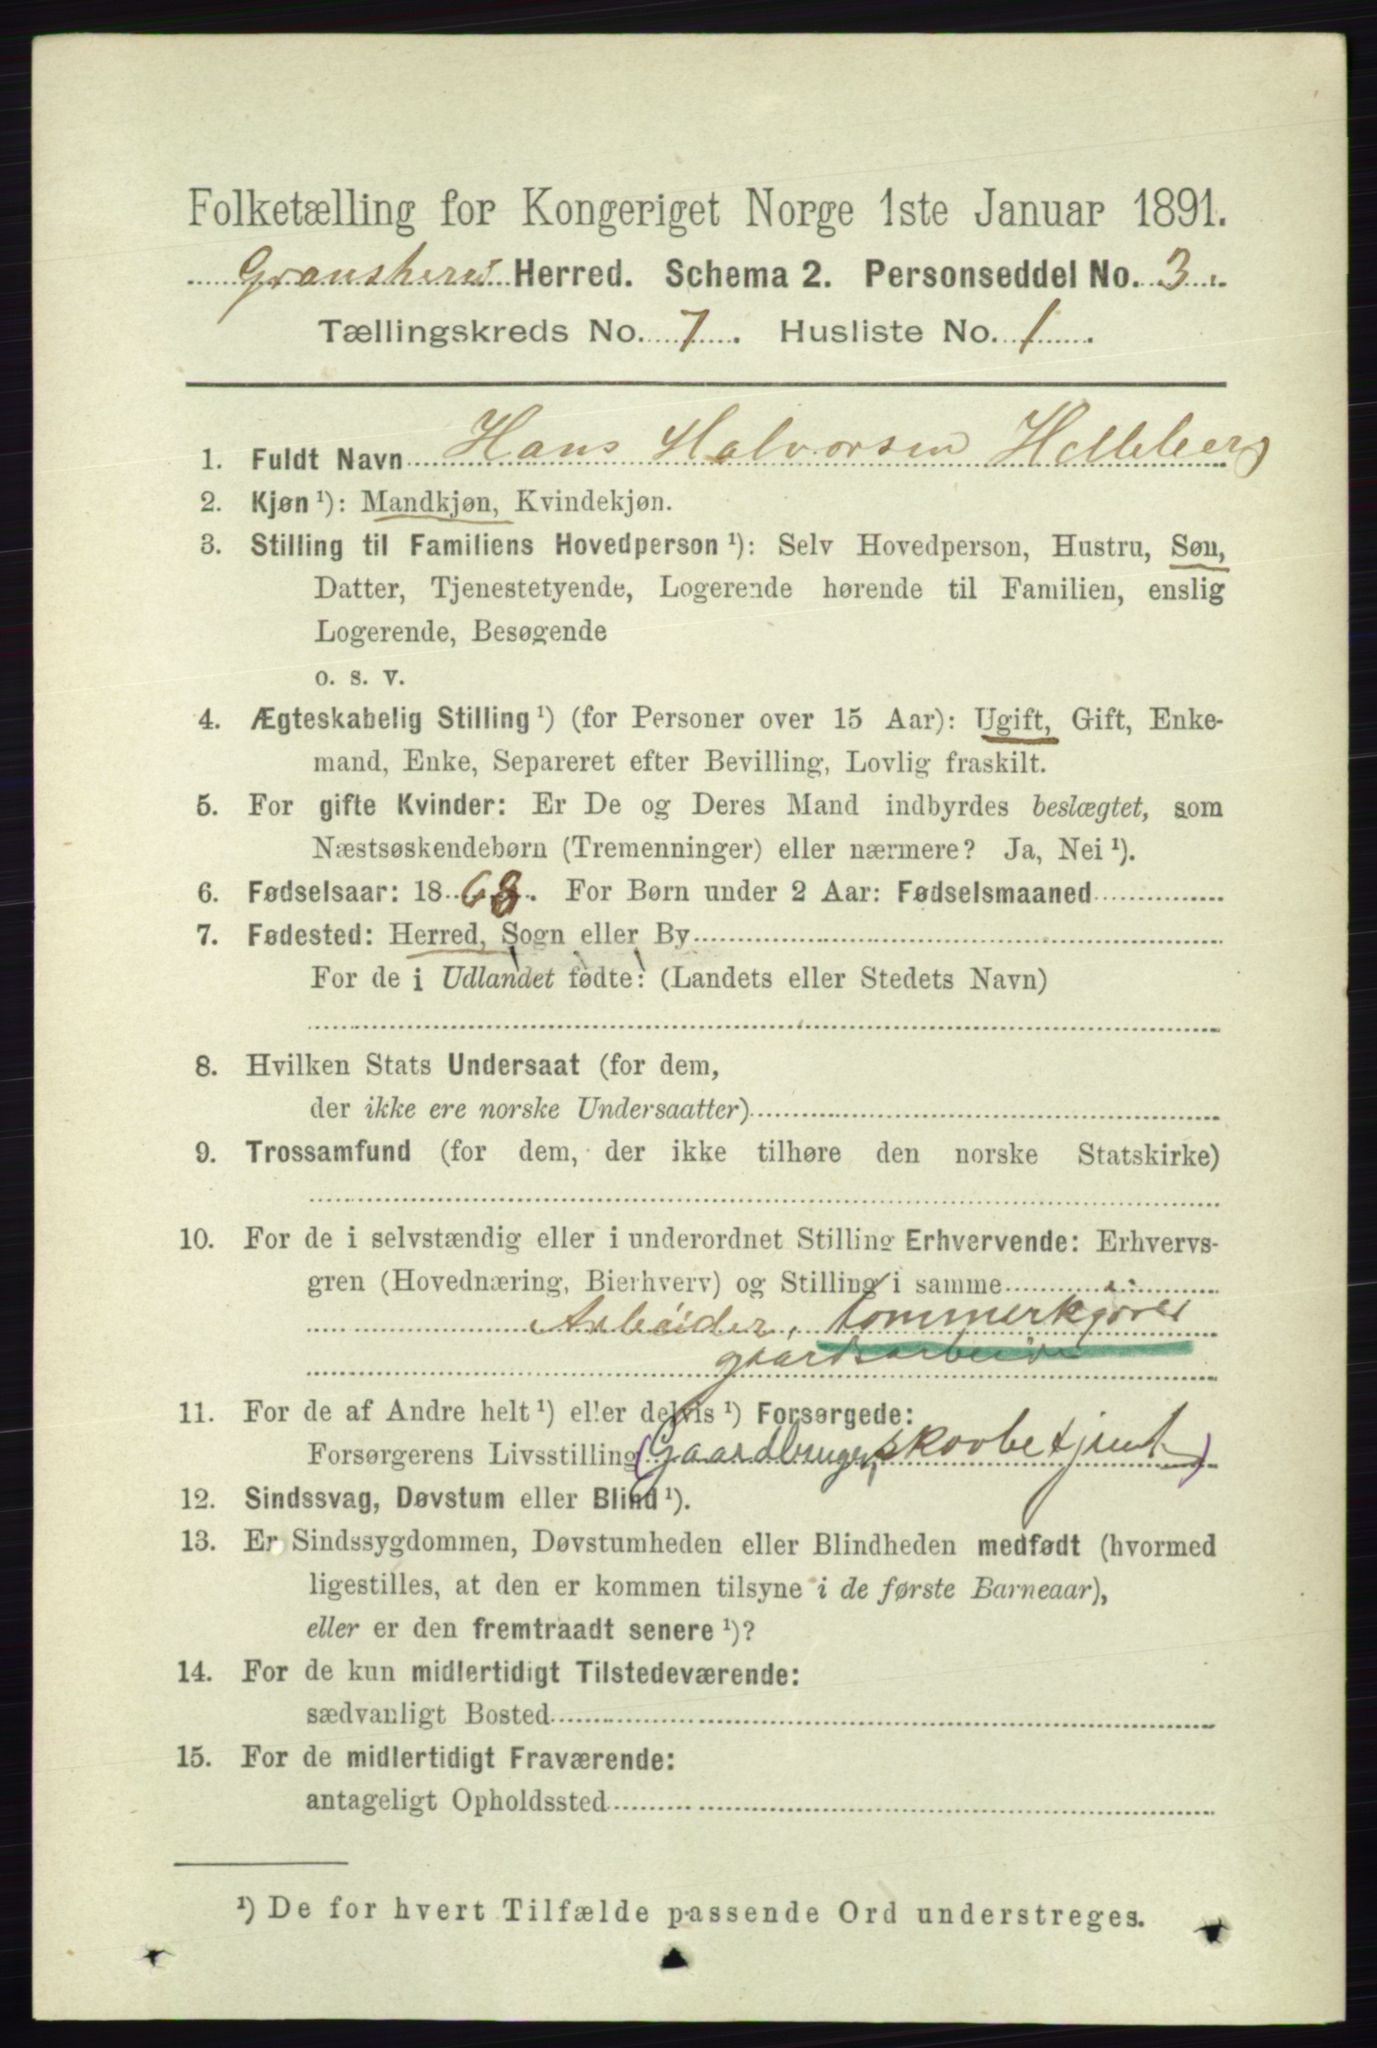 Folketælling for Kongeriget Norge 1ste Januar 1891.
Gransherred Herred. Schema 2. Personseddel No. 3.
Tællingskreds No. 7. Husliste No. 1.
1. Fuldt Navn Hans Halvorsen Helleberg
2. Kjøn ¹): Mandkjøn, Kvindekjøn.
3. Stilling til Familiens Hovedperson ¹): Selv Hovedperson, Hustru, Søn,
Datter, Tjenestetyende, Logerende hørende til Familien, enslig
Logerende, Besøgende
o. s. v.
4. Ægteskabelig Stilling ¹) (for Personer over 15 Aar): Ugift, Gift, Enke-
mand, Enke, Separeret efter Bevilling, Lovlig fraskilt.
5. For gifte Kvinder: Er De og Deres Mand indbyrdes beslægtet, som
Næstsøskendebørn (Tremenninger) eller nærmere? Ja, Nei ¹).
6. Fødselsaar: 1868. For Børn under 2 Aar: Fødselsmaaned
7. Fødested: Herred, Sogn eller By
For de i Udlandet fødte: (Landets eller Stedets Navn)
8. Hvilken Stats Undersaat (for dem,
der ikke ere norske Undersaatter)
9. Trossamfund (for dem, der ikke tilhøre den norske Statskirke)
10. For de i selvstændig eller i underordnet Stilling Erhvervende: Erhvervs-
gren (Hovednæring, Bierhverv) og Stilling i samme
Arbeider, tømmerkjører
gaardsarbeide
11. For de af Andre helt ¹) eller delvis ¹) Forsørgede:
Forsørgerens Livsstilling (Gaardbruger, skovbetjent)
12. Sindssvag, Døvstum eller Blind ¹).
13. Er Sindssygdommen, Døvstumheden eller Blindheden medfødt (hvormed
ligestilles, at den er kommen tilsyne i de første Barneaar),
eller er den fremtraadt senere ¹)?
14. For de kun midlertidigt Tilstedeværende:
sædvanligt Bosted
15. For de midlertidigt Fraværende:
antageligt Opholdssted
¹) De for hvert Tilfælde passende Ord understreges.